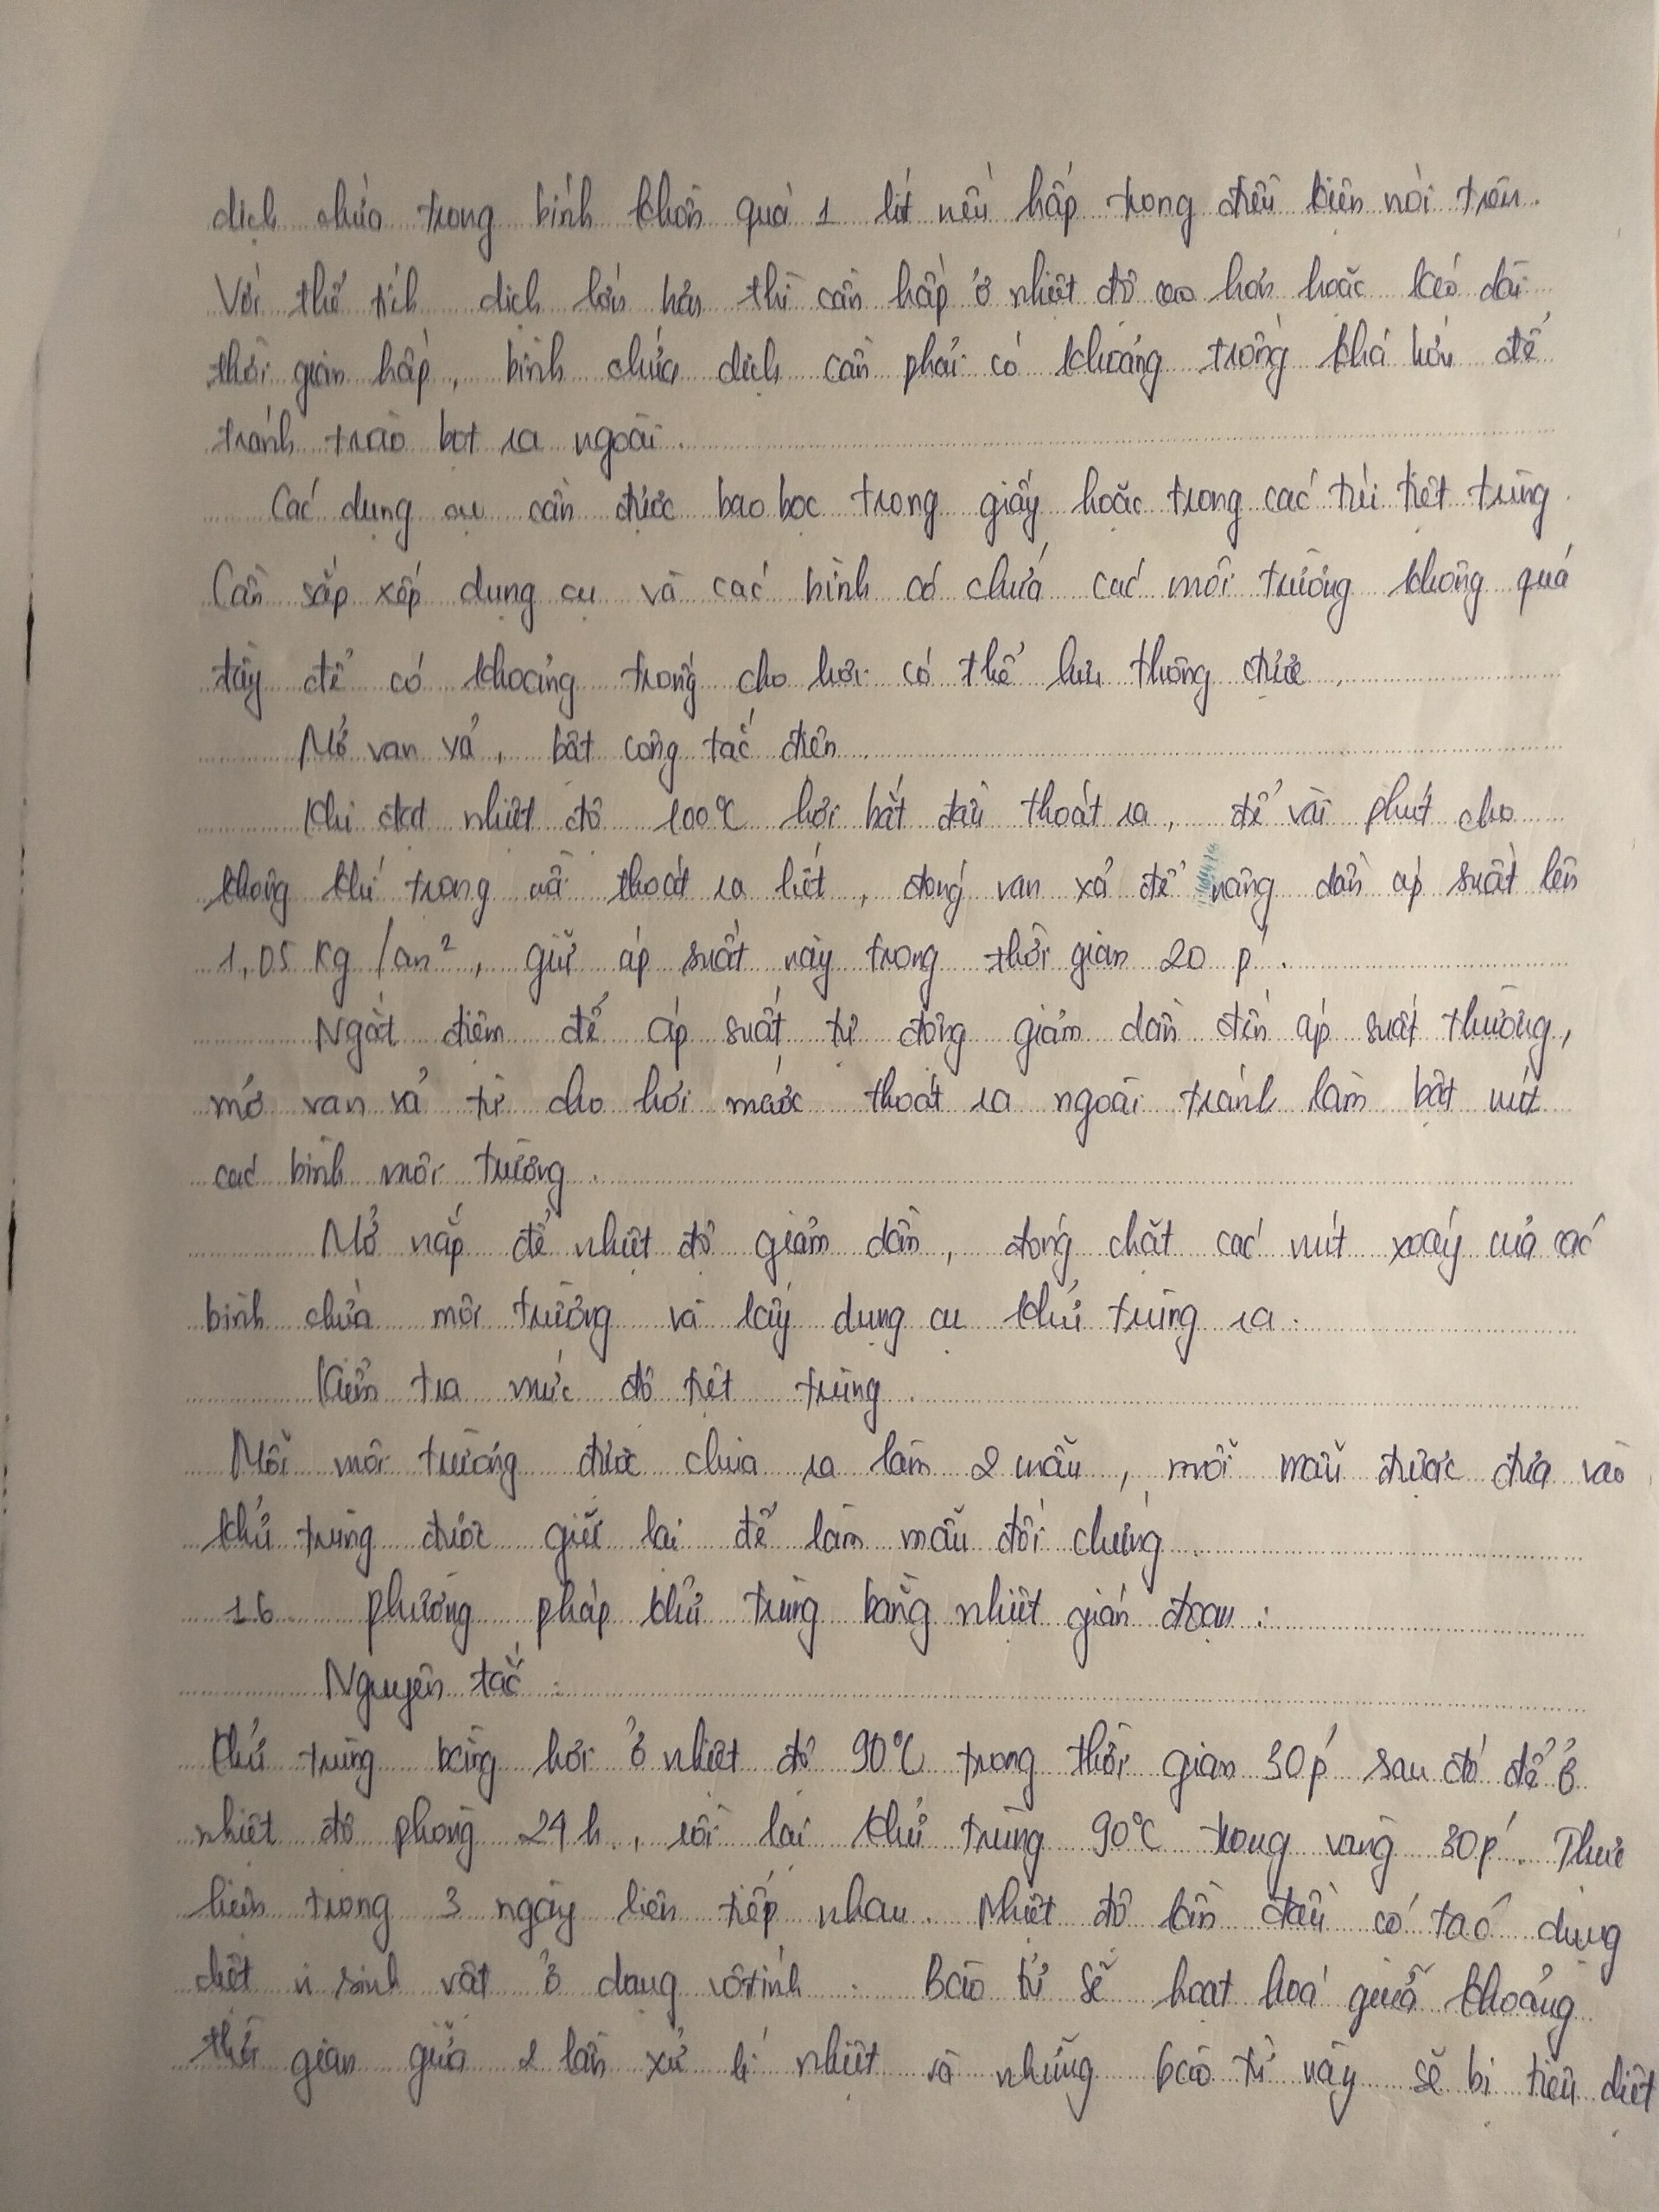 dịch chứa trong bình khôn quá 1 lít nếu hấp trong điều kiện nói trên.
Với thể tích dịch lớn hơn thì cần hấp ở nhiệt độ cao hơn hoặc kéo dài
thời gian hấp, bình chứa dịch cần phải có khoảng trống khá lớn để
tránh trào bọt ra ngoài.
Các dụng cụ cần được bao bọc trong giấy hoặc trong các túi tiệt trùng.
Cần sắp xếp dụng cụ và các bình có chứa các môi trường không quá
đầy để có khoảng trống cho hơi có thể lưu thông được.
Mở van xả, bật công tắc điện
Khi đạt nhiệt độ 100°C hơi bắt đầu thoát ra, để vài phút cho
không khí trong nồi thoát ra hết, đóng van xả để nâng dần áp suất lên
1,05 Kg/cm², giữ áp suất này trong thời gian 20 p'.
Ngắt điêm để áp suất tự động giảm dần đến áp suất thường,
mở van xả từ cho hơi nước thoát ra ngoài tránh làm bật nút
các bình môi trường.
Mở nắp để nhiệt độ giảm dần, đóng chặt các nút xoáy của các
bình chứa môi trường và lấy dụng cụ khử trùng ra.
Kiểm tra mức độ tiệt trùng.
Mỗi môi trường được chia ra làm 2 mẫu, mỗi mẫu được đưa vào
khử trùng được giữ lại để làm mẫu đối chứng.
1.6 phương pháp khử trùng bằng nhiệt gián đoạn :
Nguyên tắc :
Khử trùng bằng hơi ở nhiệt độ 90°C trong thời gian 30p' sau đó để ở
nhiệt độ phòng 24h, rồi lại khử trùng 90°C trong vòng 30p'. Thực
hiện trong 3 ngày liên tiếp nhau. Nhiệt độ lần đầu có tác dụng
diệt vi sinh vật ở dạng vô tính. Bào tử sẽ hoạt hoá giữa khoảng
thời gian giữa 2 lần xử lí nhiệt và những bào tử này sẽ bị tiêu diệt